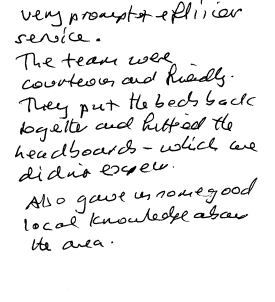 very prompt & efficien
service.
The team were
courteous and friendly.
They put the beds back
together and fitted the
headboards - which we
didn't expect.
Also gave us some good
local knowledge about
the area.